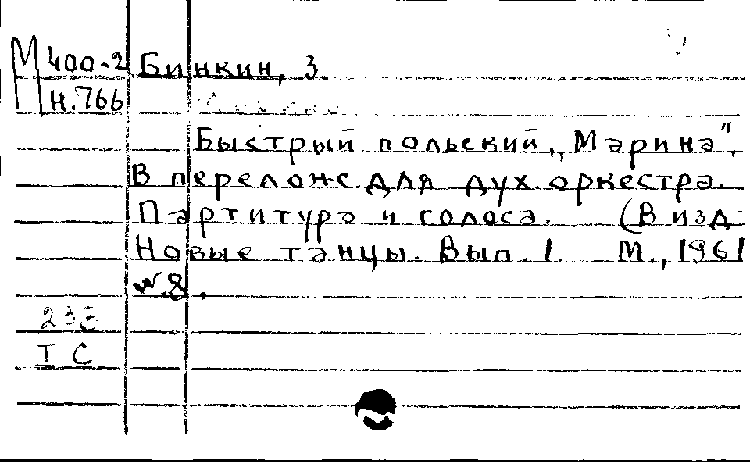 М 400-2 Бинкин, З.
Н.766
Быстрый польский „Марина".
В перелож. для дух оркестра.
Партитура и голоса. (В изд
Новые танцы. Вып. 1. М., 1961
№8.
233
Т С